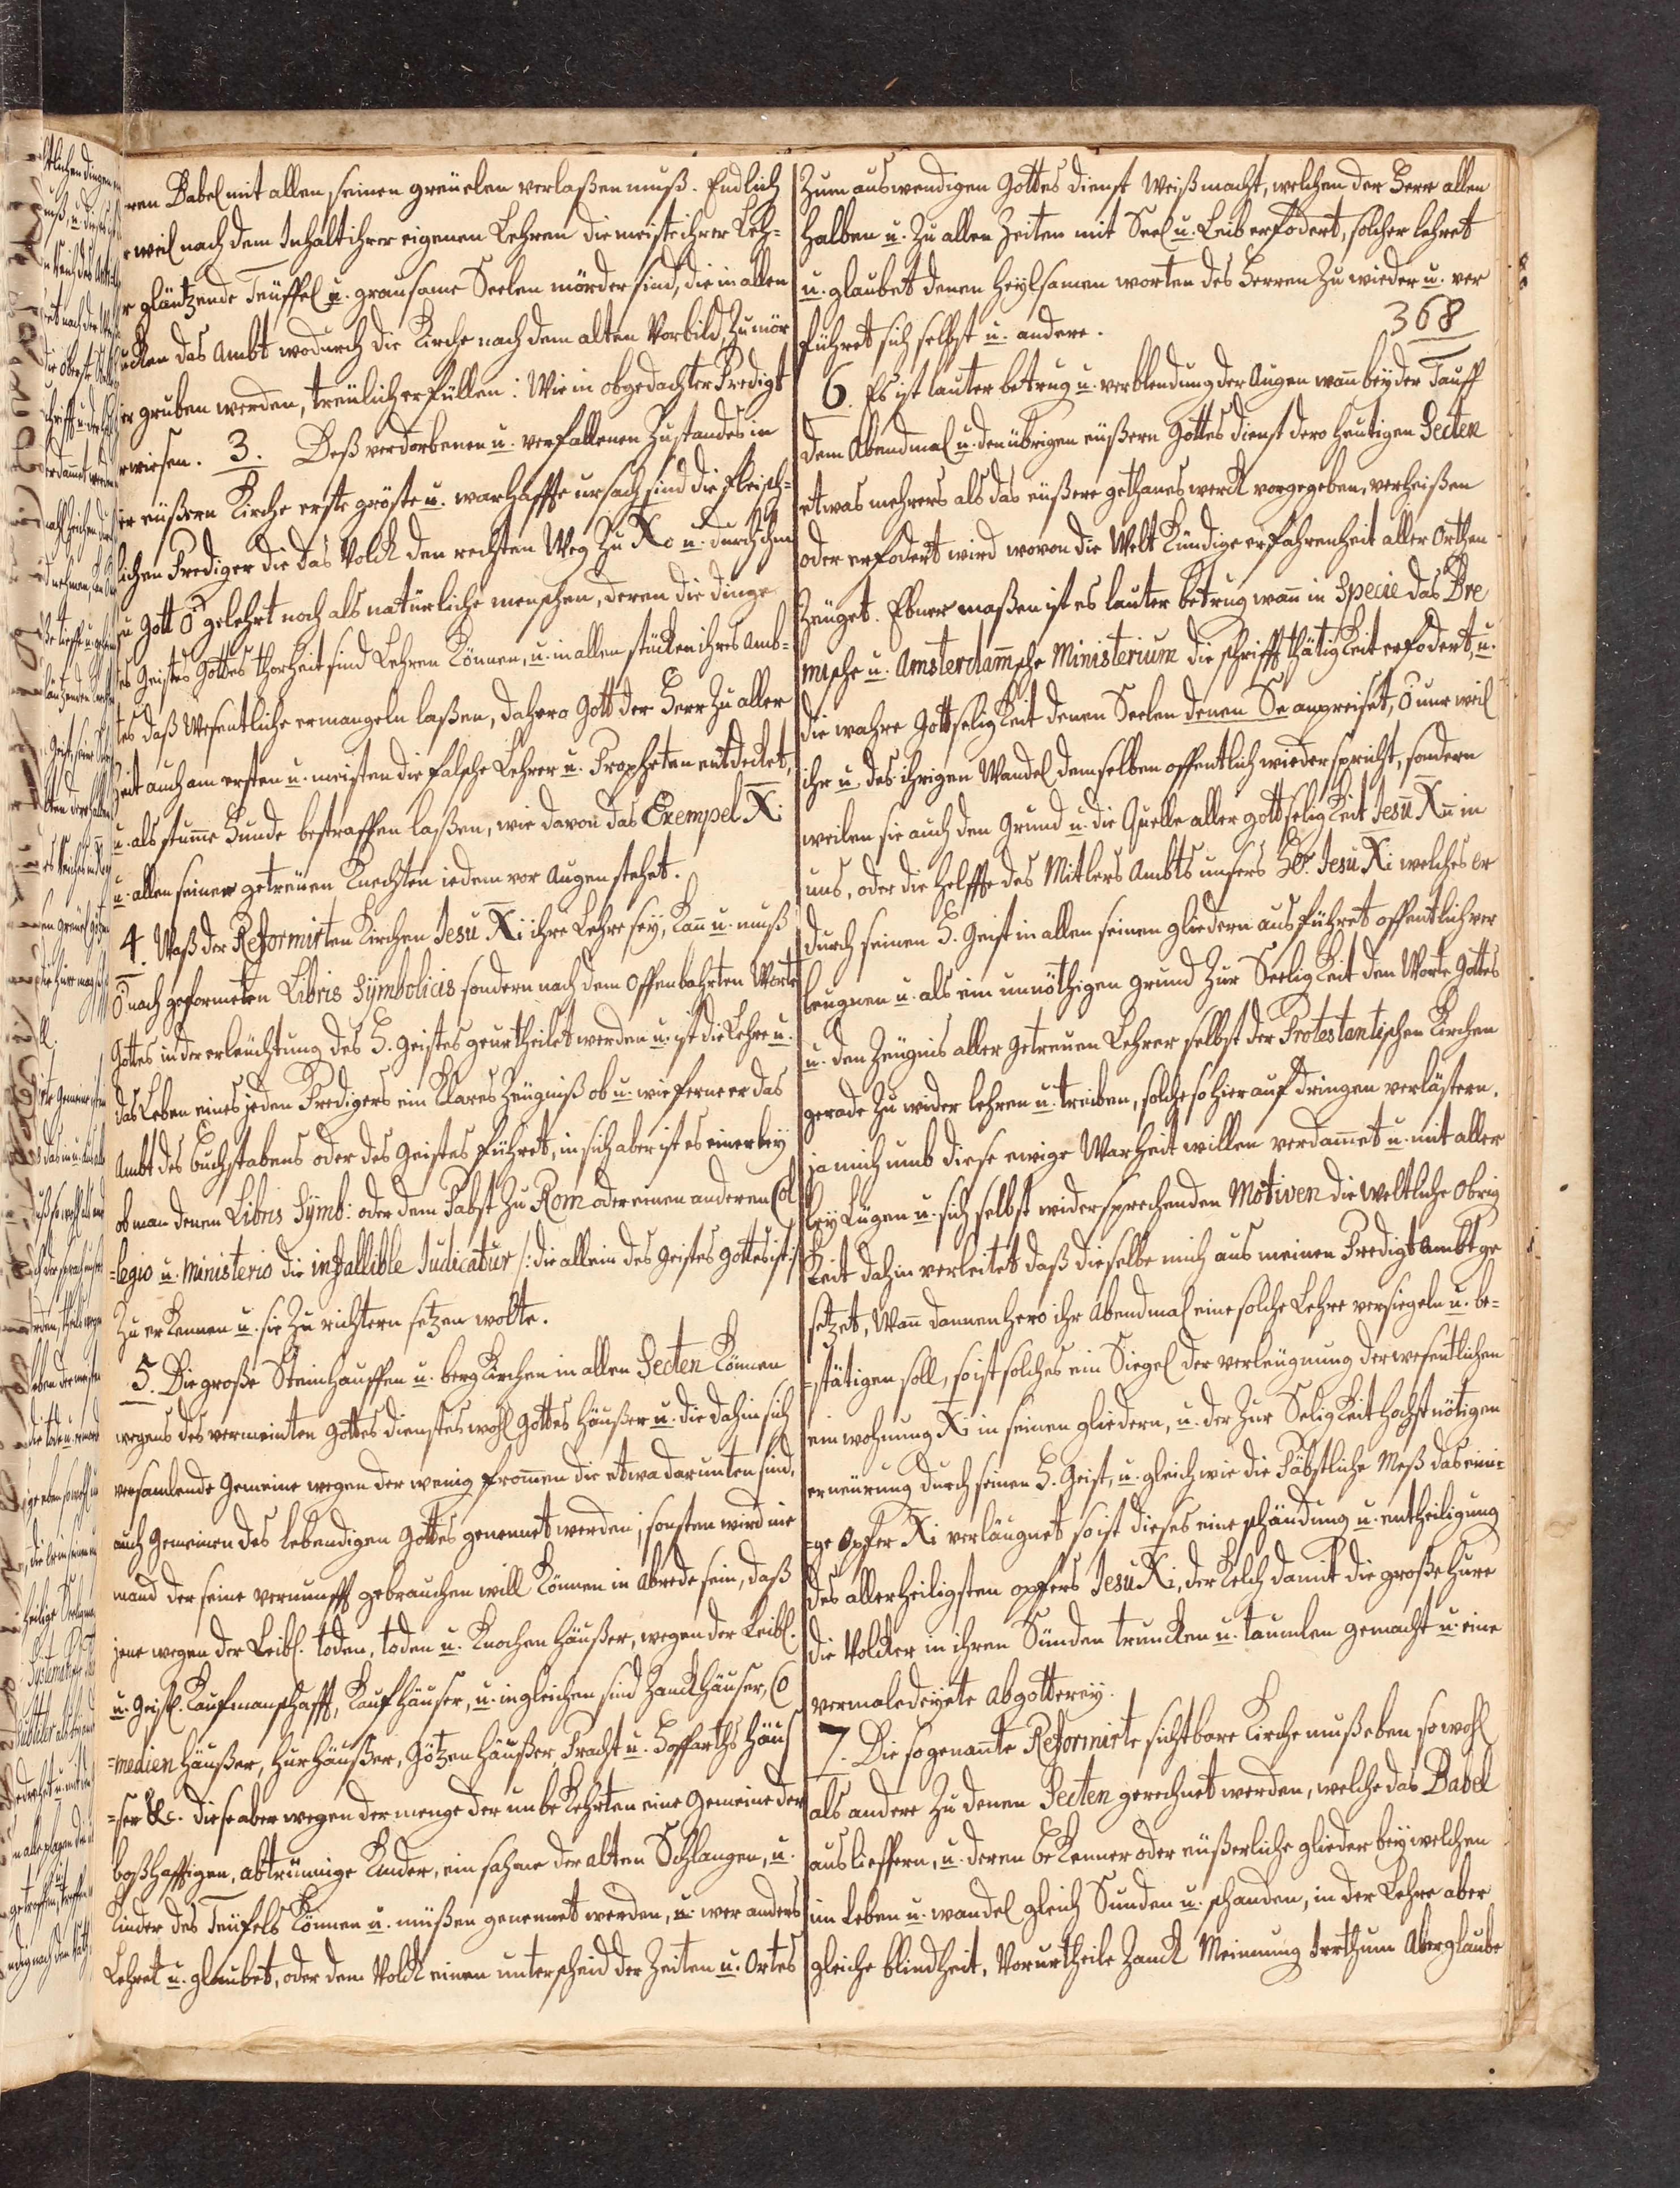 ren Babel mit allen seinen greuelen verlaßen muß. Endlich
weil nach dem Inhalt ihrer eigenen Lehren die meiste ihrer Leh=
r gläntzende Teüffel u. grausame Seelen mörder sind, die in allen
ucken das Ambt wodurch die Kirche nach dem alten Vorbild, zu mör
er gruben werden, treulich erfüllen: Wie in obgedachter Predigt
erwiesen. 3. Deß verdorbenen u. verfallenen Zustandes in
er eüßern Kirche erste gröste u. warhaffte ursach sind die fleisch=
lichen Prediger die das Volck den rechten Weg zu Xo u. durch ihn
zu Gott Ō gelehrt noch als natürliche menschen, deren die dinge
des Geistes Gottes thorheit sind Lehren können, u. in allen stücken ihres Amb=
tes daß Wesentliche ermangeln laßen, dahero Gott der Herr zu aller
Zeit auch am ersten u. meisten die falsche Lehrer u. Propheten entdecket,
u. als stum̄e Hunde bestraffen laßen, wie davon das Exempel Xi
u. allen seiner getreuen Knechten iedem vor Augen stehet.
4. Waß der Reformirten Kirchen Jesu Xi ihre Lehre sey, kan̄ u. muß
Ō nach geformeten Libris Symbolicis sondern nach dem offenbahrten Worte
Gottes in der erleuchtung des H. Geistes geurtheilet werden u. ist die Lehre u.
das Leben eines jeden Predigers ein klares Zeugniß ob u. wie ferne er das
Ambt des buchstabens oder des Geistes führet, in sich aber ist es einerley
ob man denen Libris Symb: oder dem Pabst zu Rom oder einen anderen Col
=legio u. Ministerio die infallible Judicatur /: die allein des Geistes Gottes ist :/
zu erkennen u. sie zu richtern setzen wolte.
5. Die große Steinhauffen u. berg Kirchen in allen Secten können
wegens des vermeinten Gottes dienstes wohl Gottes Häußer u. die dahin sich
versamlende Gemeine wegen der wenig from̄en die etwa darunten sind,
auch Gemeinen des lebendigen Gottes genennet werden; sonsten wird nie
mand der seine vernunfft gebrauchen will können in Abrede sein, daß
jene wegen der Leibl. toden, toden u. Knochen Häußer, wegen der Leibl.
u. Geistl. Kaufmanschafft, Kauf Häuser, u. ingleichen sind Zanck Häuser, Co
=medien Häußer, Hur Häußer, Götzen Häußer, Pracht u. Hoffarths Häus
=ser &c. diese aber wegen der menge der unbekehrten eine Gemeine der
boßhafftigen, abtrünnige Kinder, ein sahme der alten Schlangen, u.
Kinder des Teufels können u. müßen genennet werden, u. wer anders
Lehret u. glaubet, oder dem Volck einen unterscheid der Zeiten u. Ortes
Zum auswendigen Gottes dienst weiß macht, welchen der Herr allen
halben u. zu allen Zeiten mit Seel u. Leib erfodert, solcher lehret
u. glaubet denen heylsamen worten des Herren zu wieder u. ver
führet sich selbst u. andere.
368
6. Es ist lauter betrug u. verblendung der Augen wan̄ bey der Tauff
dem Abendmal u. den übrigen eüßern Gottes dienst dero heutigen Secten
etwas mehrers als das eüßere gethanes werck vorgegeben, verheißen
oder erfodert wird wovon die Welt kündige erfahrenheit aller Orthen
zeuget. Ebner maßen ist es lauter betrug wan̄ in Specie das Bre
mische u. Amsterdam̄sche Ministerium die schrifft thätigkeit erfodert, u.
die wahre Gottseligkeit denen Seelen denen Se anpreiset, Ō nur weil
ihr u. des ihrigen Wandel demselben offentlich wiederspricht, sondern
weilen sie auch den Grund u. die Quelle aller gottseligkeit Jesū Xn̄ in
uns, oder die Helffte des Mitlers Ambts unsers Hr. Jesu Xi welches er
durch seinen H. Geist in allen seinen gliedern ausführet offentlich ver
leugnen u. als ein unnöthigen grund zur Seeligkeit dem Worte Gottes
u. den Zeugnis aller getreuen Lehrer selbst der Protestantischen Kirchen
gerade zu wider lehren u. treiben, solche so hierauf dringen verlästern,
ja mich umb diese ewige Warheit willen verdam̄et u. mit aller
ley Lügen u. sich selbst widersprechenden Motiven die weltliche Obrig
keit dahin verleitet daß dieselbe mich aus meinen Predigt Ambt ge
setzet, Wan̄ dannenhero ihr Abendmal eine solche Lehre versiegeln u. be=
=stätigen soll, so ist solches ein Siegel der verleugnung der wesentlichen
einwohnung Xi in seinen gliedern, u. der zur Seligkeit hochst nötigen
erneürung durch seinen H. Geist, u. gleich wie die Päbstliche Meß das eini=
=ge Opfer Xi verläugnet so ist dieses eine schändung u. entheiligung
des allerheiligsten opfers Jesu Xi, der Kelch damit die große Hure
die Volcker in ihren Sünden truncken u. taumlen gemacht u. eine
vermaledeyete Abgotterey.
7. Die sogenan̄te Reformirte sichtbare Kirche muß eben so wohl
als andere zu denen Secten gerechnet werden, welche das Babel
ausliefferen, u. deren bekenner oder eüßerliche glieder bey welchen
im Leben u. wandel gleich Sunden u. schanden, in der Lehre aber
gleiche blindheit, Vorurtheile Zanck Meinung Irrthum Aberglaube